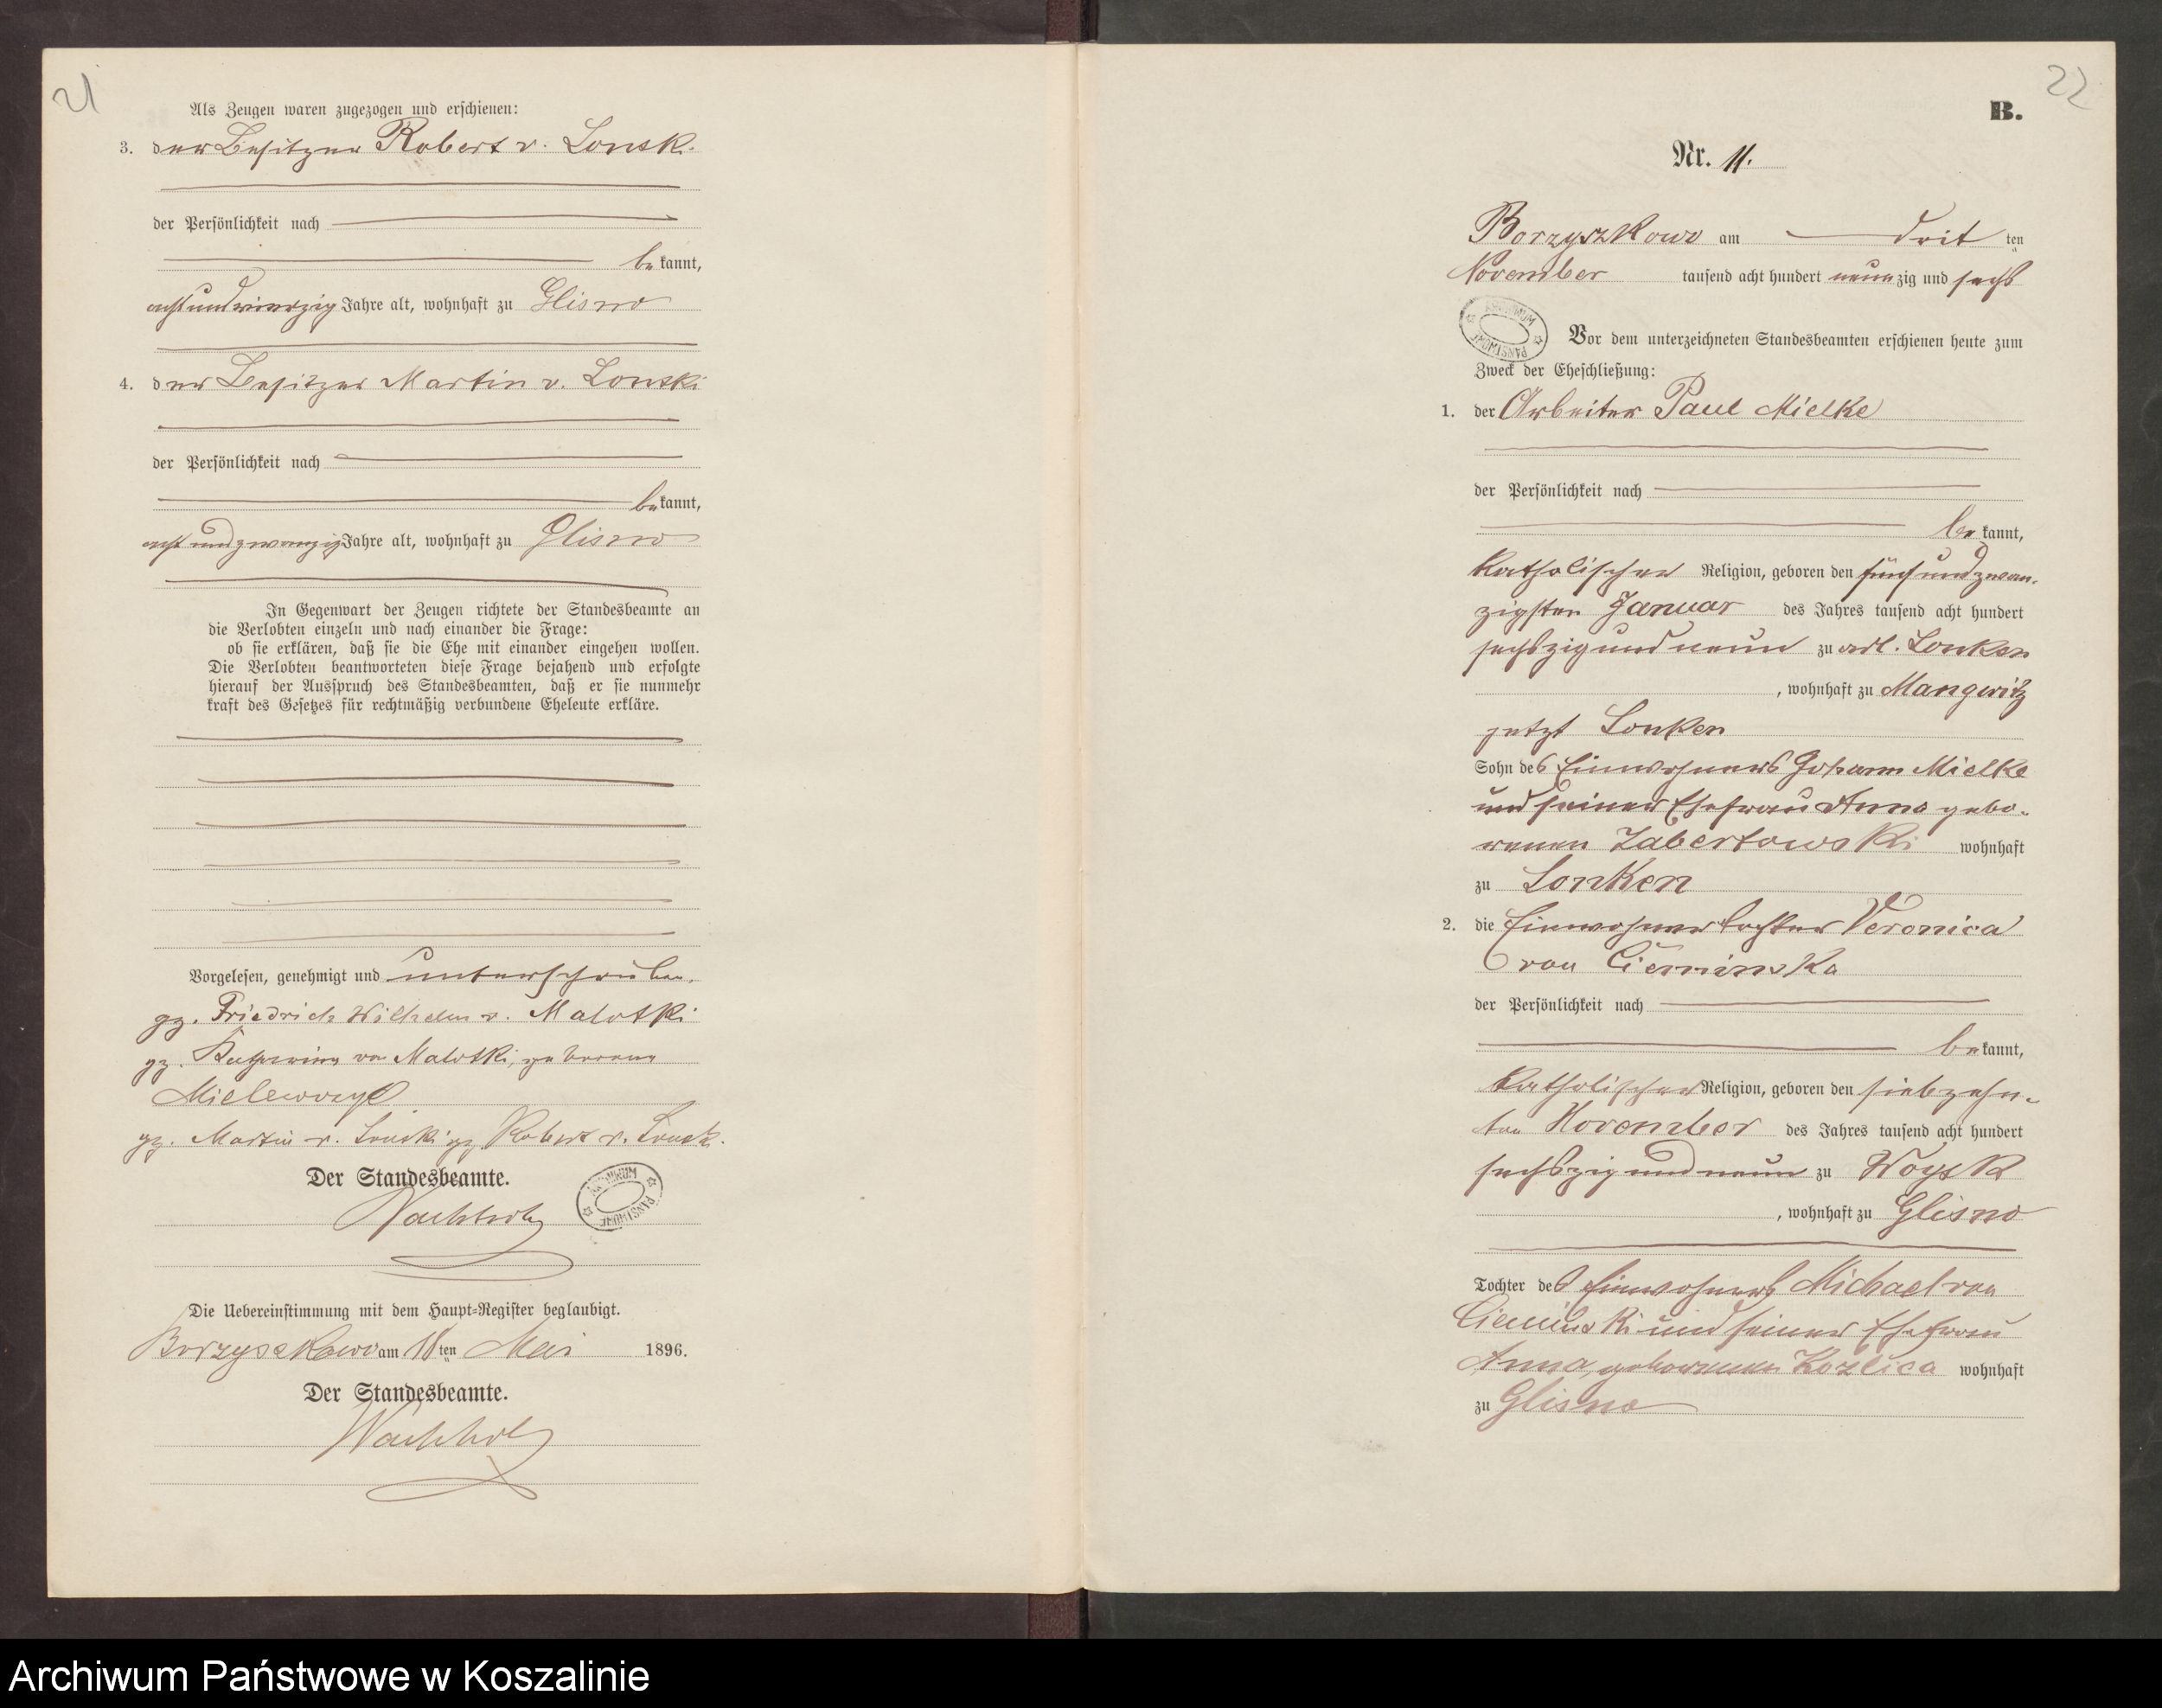 21
Als Zeugen waren zugezogen und erschienen:
3. der Besitzer Robert v. Lonsk.
der Persönlichkeit nach
bekannt,
achtundvierzig Jahre alt, wohnhaft zu Glisno
4. der Besitzer Martin v. Lonski
der Persönlichkeit nach
bekannt,
acht und zwanzig Jahre alt, wohnhaft zu Glisno
In Gegenwart der Zeugen richtete der Standesbeamte an
die Verlobten einzeln und nach einander die Frage:
ob sie erklären, daß sie die Ehe mit einander eingehen wollen.
Die Verlobten beantworteten diese Frage bejahend und erfolgte
hierauf der Ausspruch des Standesbeamten, daß er sie nunmehr
kraft des Gesetzes für rechtmäßig verbundene Eheleute erkläre.
Vorgelesen, genehmigt und unterschrieben.
gz. Friedrich Wilhelm v. Malotki
gz. Katharina von Malotki, geborene
Mielewczyk
gz. Martin v. Lonski gz. Robert v. Lonsk.
Der Standesbeamte.
Wachholz
ARCHIWUM PAŃSTWOWE
Die Uebereinstimmung mit dem Haupt-Register beglaubigt.
Borzyszkowo am 18ten Mai 1896.
Der Standesbeamte.
Wachholz
22
B.
Nr. 11.
Borzyszkowo am dritten
November tausend acht hundert neunzig und sechs
ARCHIWUM PAŃSTWOWE
Vor dem unterzeichneten Standesbeamten erschienen heute zum
Zweck der Eheschließung:
1. der Arbeiter Paul Mielke
der Persönlichkeit nach
bekannt,
katholischer Religion, geboren den fünfundzwan-
zigsten Januar des Jahres tausend acht hundert
sechszig und neun zu adl. Lonken
, wohnhaft zu Mangwitz
jetzt Lonken
Sohn des Einwohners Johann Mielke
und seiner Ehefrau Anna gebo-
renen Zabertowski wohnhaft
zu Lonken
2. die Einwohnertochter Veronica
von Cieminska
der Persönlichkeit nach
bekannt,
katholischer Religion, geboren den siebzehn-
ten November des Jahres tausend acht hundert
sechszig und neun zu Woysk
, wohnhaft zu Glisno
Tochter des Einwohners Michael von
Cieminski und seiner Ehefrau
Anna, geborenen Kozlica wohnhaft
zu Glisno
Archiwum Państwowe w Koszalinie